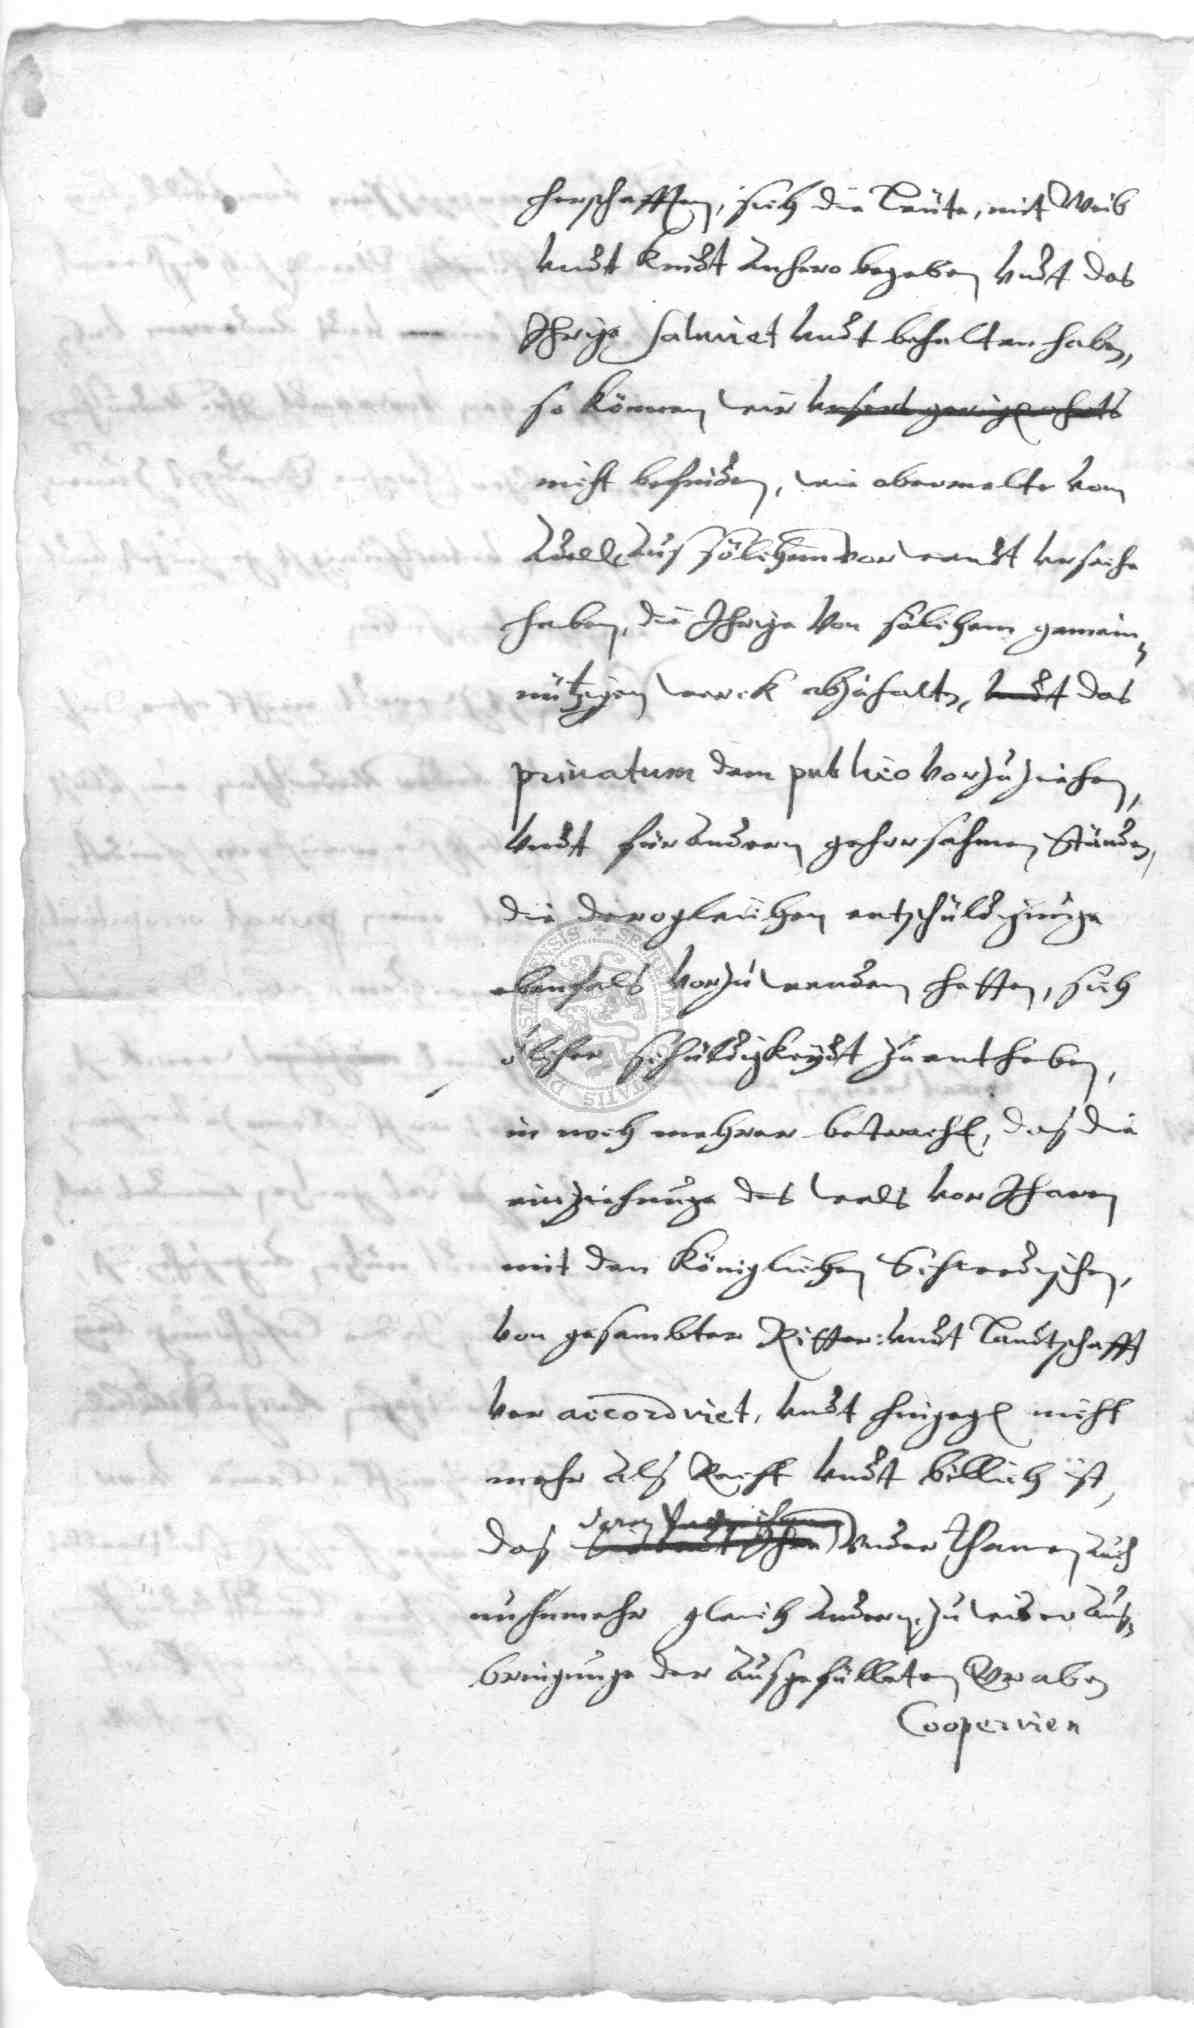 herschafften, sich die Leüte, mit Weib
vndt Kindt anhero begeben vndt das
Ihrige salviret vndt behalten haben,
so können wir vnsers geringen ohrts
nicht befinden, wie obermelte vom
Adell, aus sölchem vorwandt vrsache
haben, die Ihrige von sölchem gemein„
nützigen werck abzuhalten, vndt das
privatum dem publico vorzuziehen,
vndt für andern gehorsahmen Ständen,
die dergleichen entschüldigunge
ebenfals vorzuwenden hetten, sich
sölcher schüldigkeydt zu entheben,
in noch mehrer betracht, das die
einziehunge des wals vor Ihnen
mit den Königlichen Schwedischen,
von gesambter Ritter: vndt Landtschafft
ver accordiret, vndt hingegen nicht
mehr als Recht vndt billich ist,
das deren Vnderthanen auch
nuhnmehr gleich andern, zu wider auf„
bringunge der ausgefülleten Graben
Cooperiren
SIGILLUM CIVITATIS